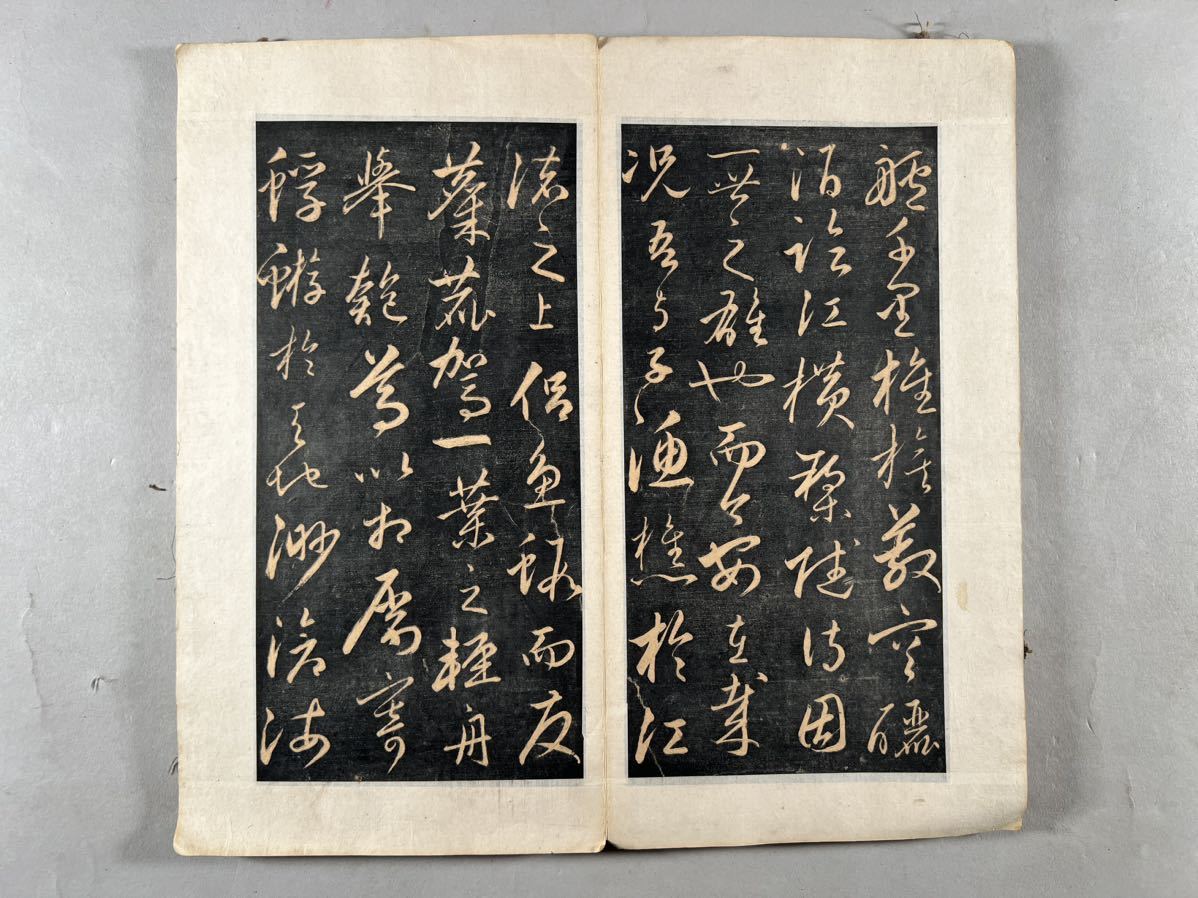 艫千里旌旗蔽空釃
酒臨江橫槊賦詩固
一世之雄也而今安在哉
況吾與子漁樵於江
渚之上侶魚蝦而友
麋鹿駕一葉之輕舟
舉匏尊以相屬寄
蜉蝣於天地渺滄海